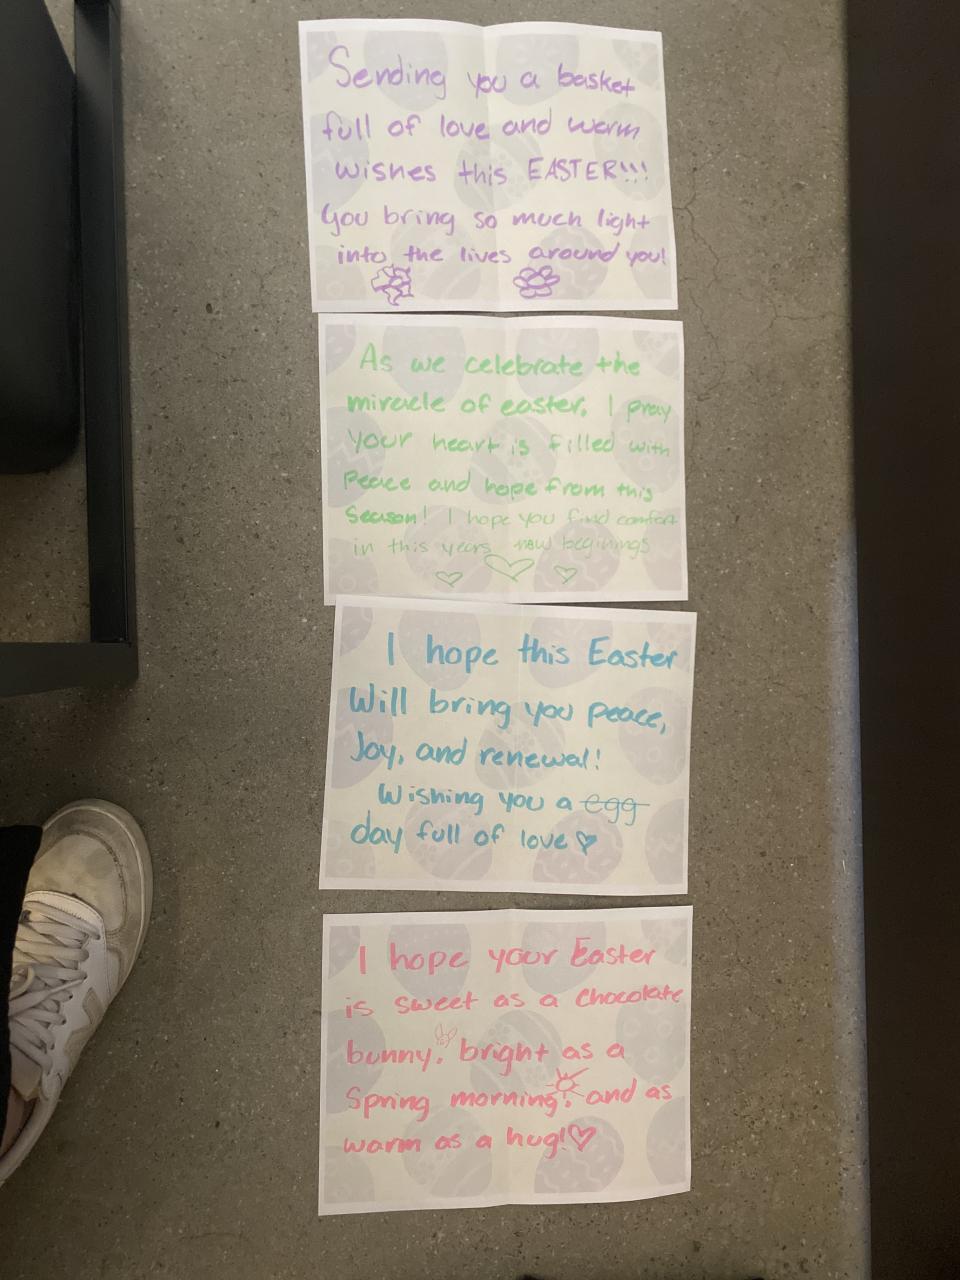 Sending you a basket
full of love and warm
wishes this EASTER!!!
You bring so much light
into the lives around you!
As we celebrate the
miracle of easter, I pray
your heart is filled with
Peace and hope from this
Season! I hope you find comfort
in this years new beginings
I hope this Easter
Will bring you peace,
Joy, and renewal!
Wishing you a egg
day full of love
I hope your Easter
is sweet as a chocolate
bunny, bright as a
Spring morning, and as
warm as a hug!